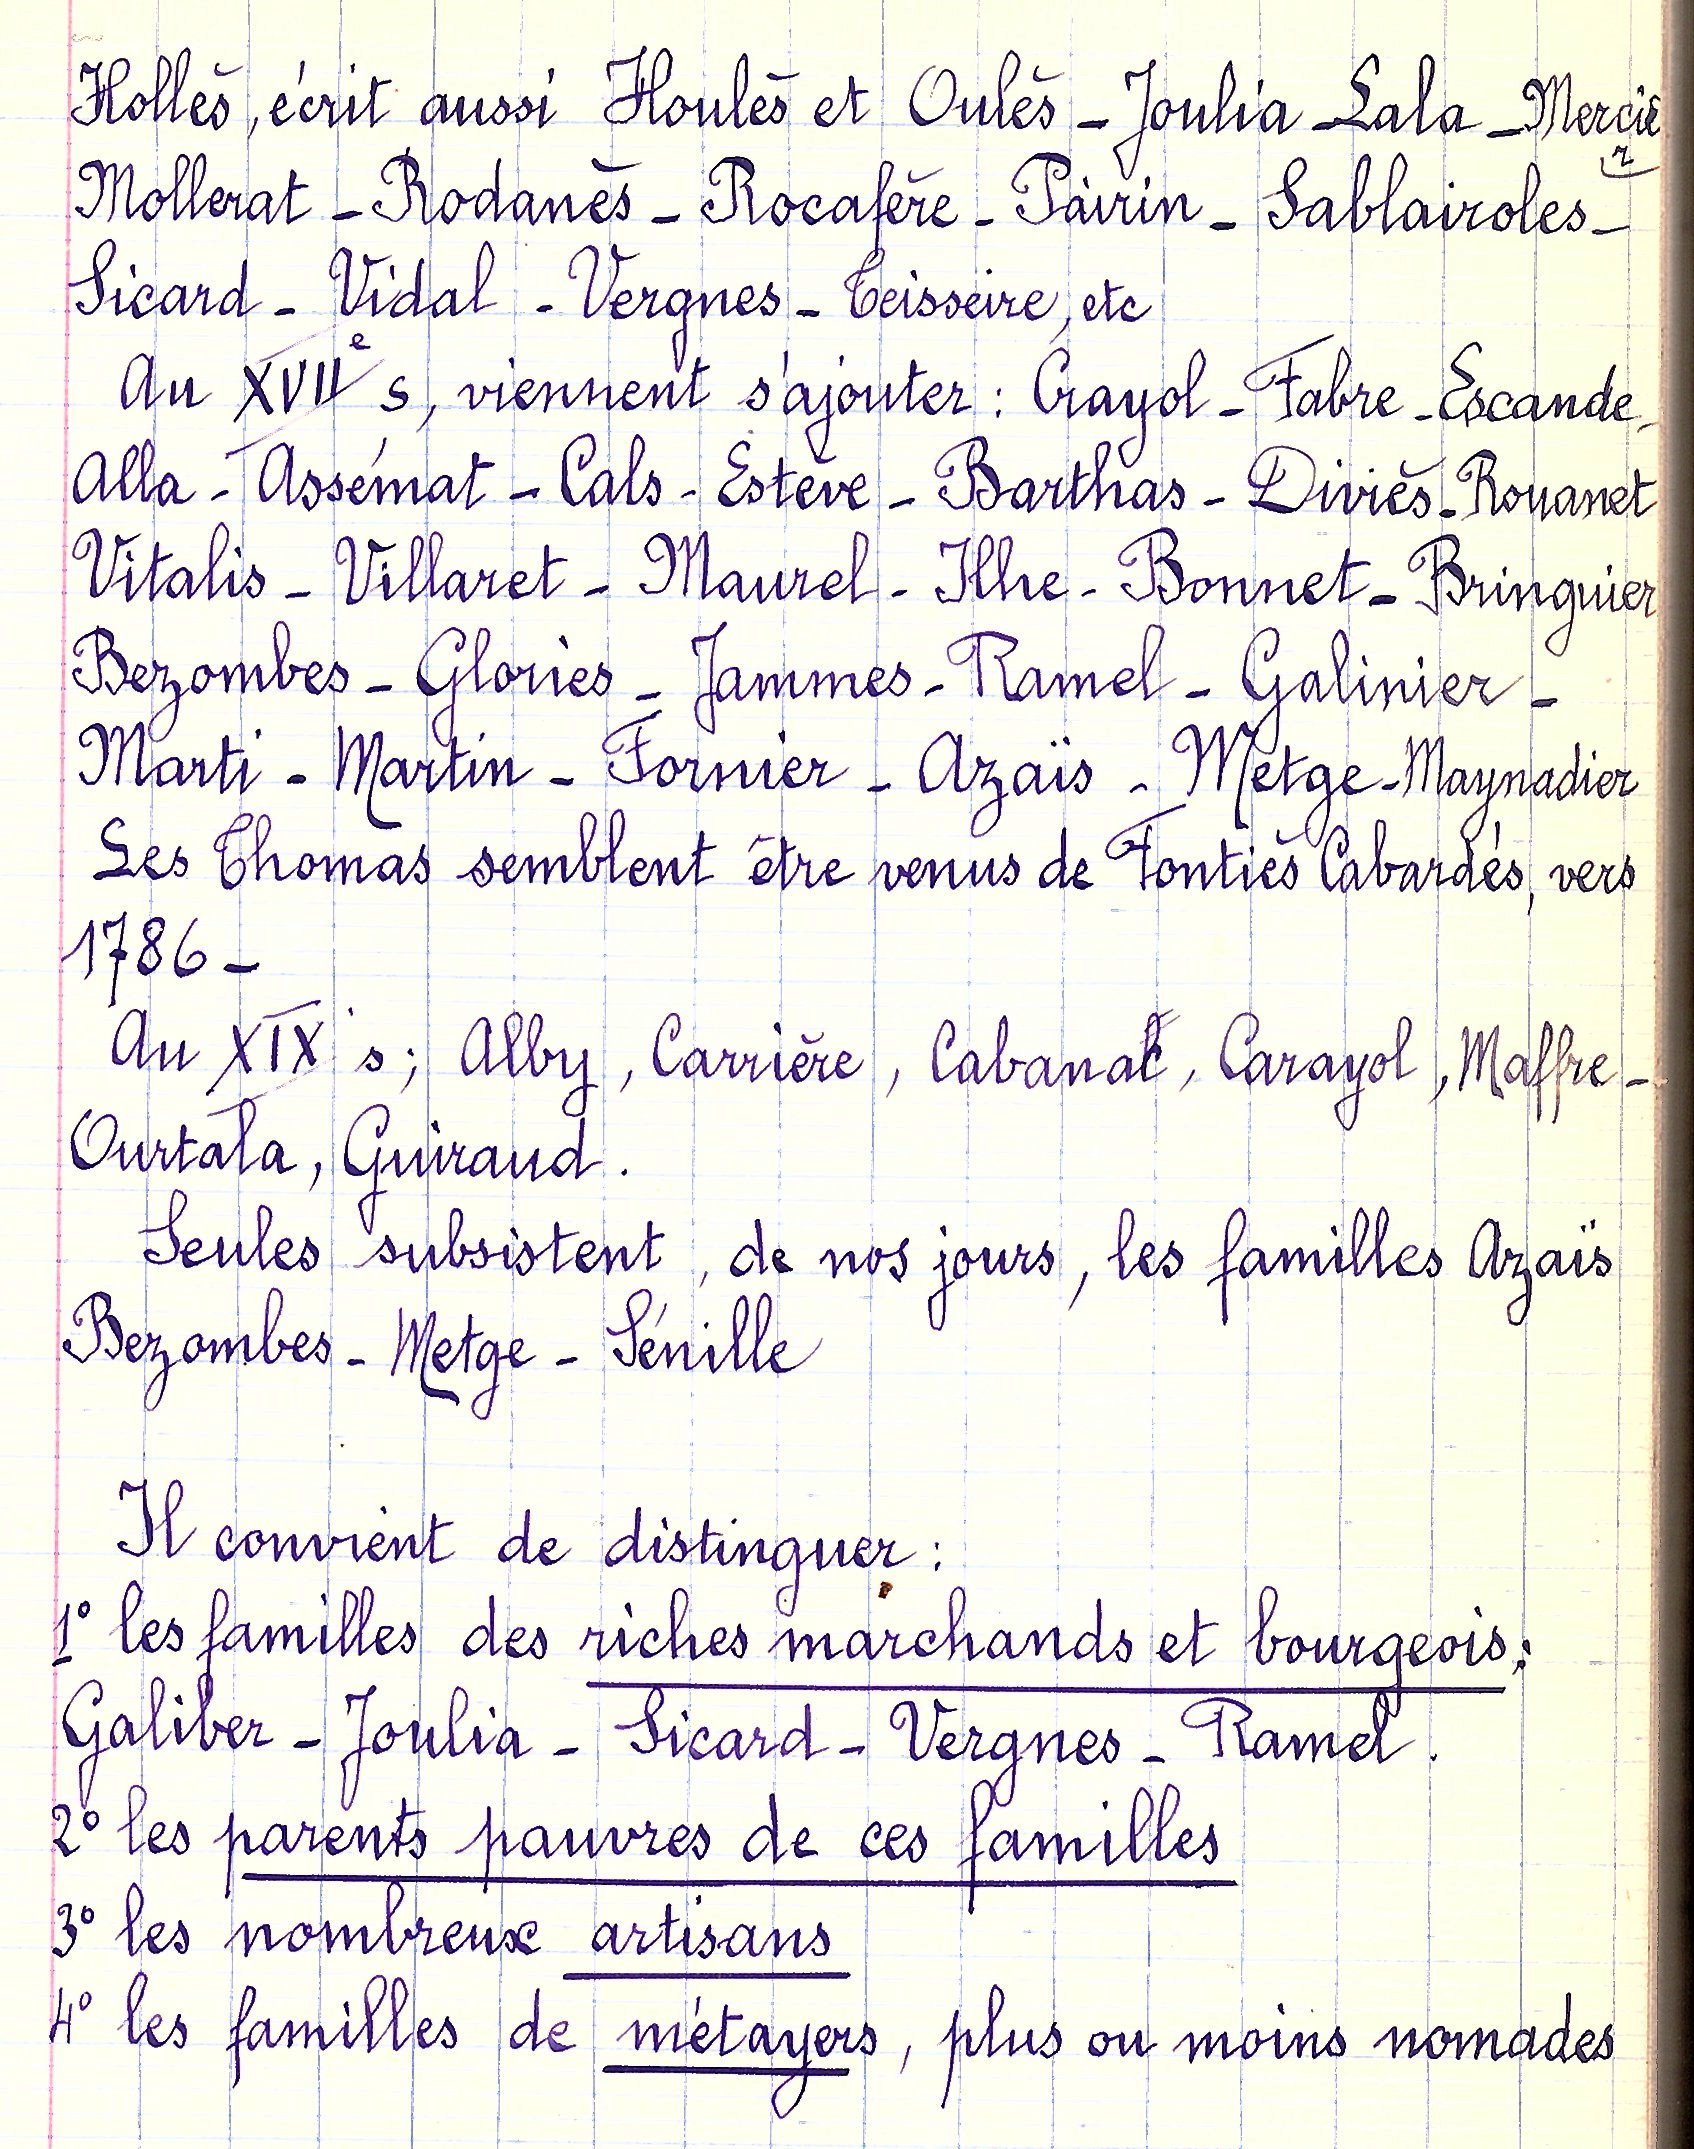 Hollès, écrit aussi Houlès et Oulès - Joulia - Lala - Mercier
Mollerat - Rodanès - Rocafère - Pàirin - Sablairoles -
Sicard - Vidal - Vergnes - Teisseire, etc
Au XVIIe s, viennent s'ajouter : Crayol - Fabre - Escande -
Alla - Assémat - Cals - Estève - Barthas - Diviès - Rouanet
Vitalis - Villaret - Maurel - Ilhe - Bonnet - Bringuier
Bezombes - Glories - Jammes - Ramel - Galinier -
Marti - Martin - Fornier - Azaïs - Metge - Maynadier
Les Thomas semblent être venus de Fontiès Cabardés, vers
1786 -
Au XIX s ; Alby, Carrière, Cabanac, Carayol, Maffre -
Ourtala, Guiraud.
Seules subsistent, de nos jours, les familles Azaïs
Bezombes - Metge - Sénille
Il convient de distinguer :
1° les familles des riches marchands et bourgeois ;
Galiber - Joulia - Sicard - Vergnes - Ramel.
2° les parents pauvres de ces familles
3° les nombreux artisans
4° les familles de métayers, plus ou moins nomades